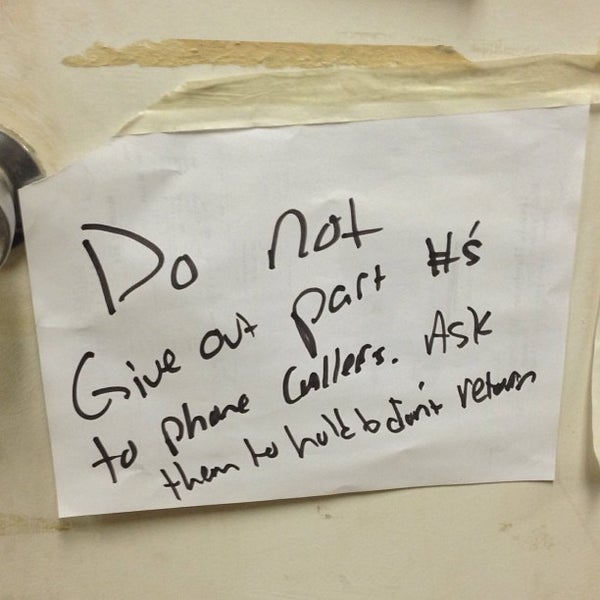 Do not
Give out part #'s
to phone callers. Ask
them to hold & don't return